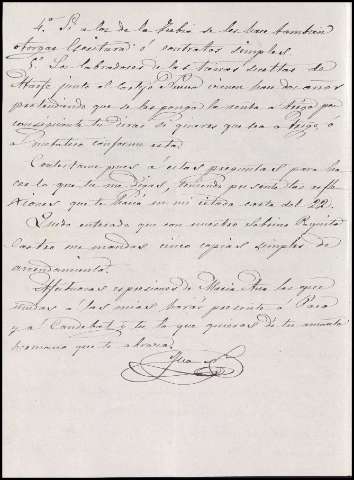 4.º Si a los de la Rubia se les hace tambien
otorgar Escritura ó contratos simples.
5.º La labradores de las tierras sueltas de
junto al Cortijo vienen hace dos años
pretendiendo que se les ponga la renta a trigo por
consiguiente tu diras si quieres que sea a trigo ó
a metalico conforme está.
Contestame pues á estas preguntas para ha-
cer lo que tu me digas, teniendo presente las refle-
xiones que te hacia en mi citada carta del 22.
Quedo enterado que con nuestro Sobrino
me mandas cinco copias simples de
arrendamiento.
Afectuosas espresiones de Maria Ana las que
unidas á las mias harás presente á Paca
y á Candebat y tu lo que quieras de tu amante
hermano que te abraza